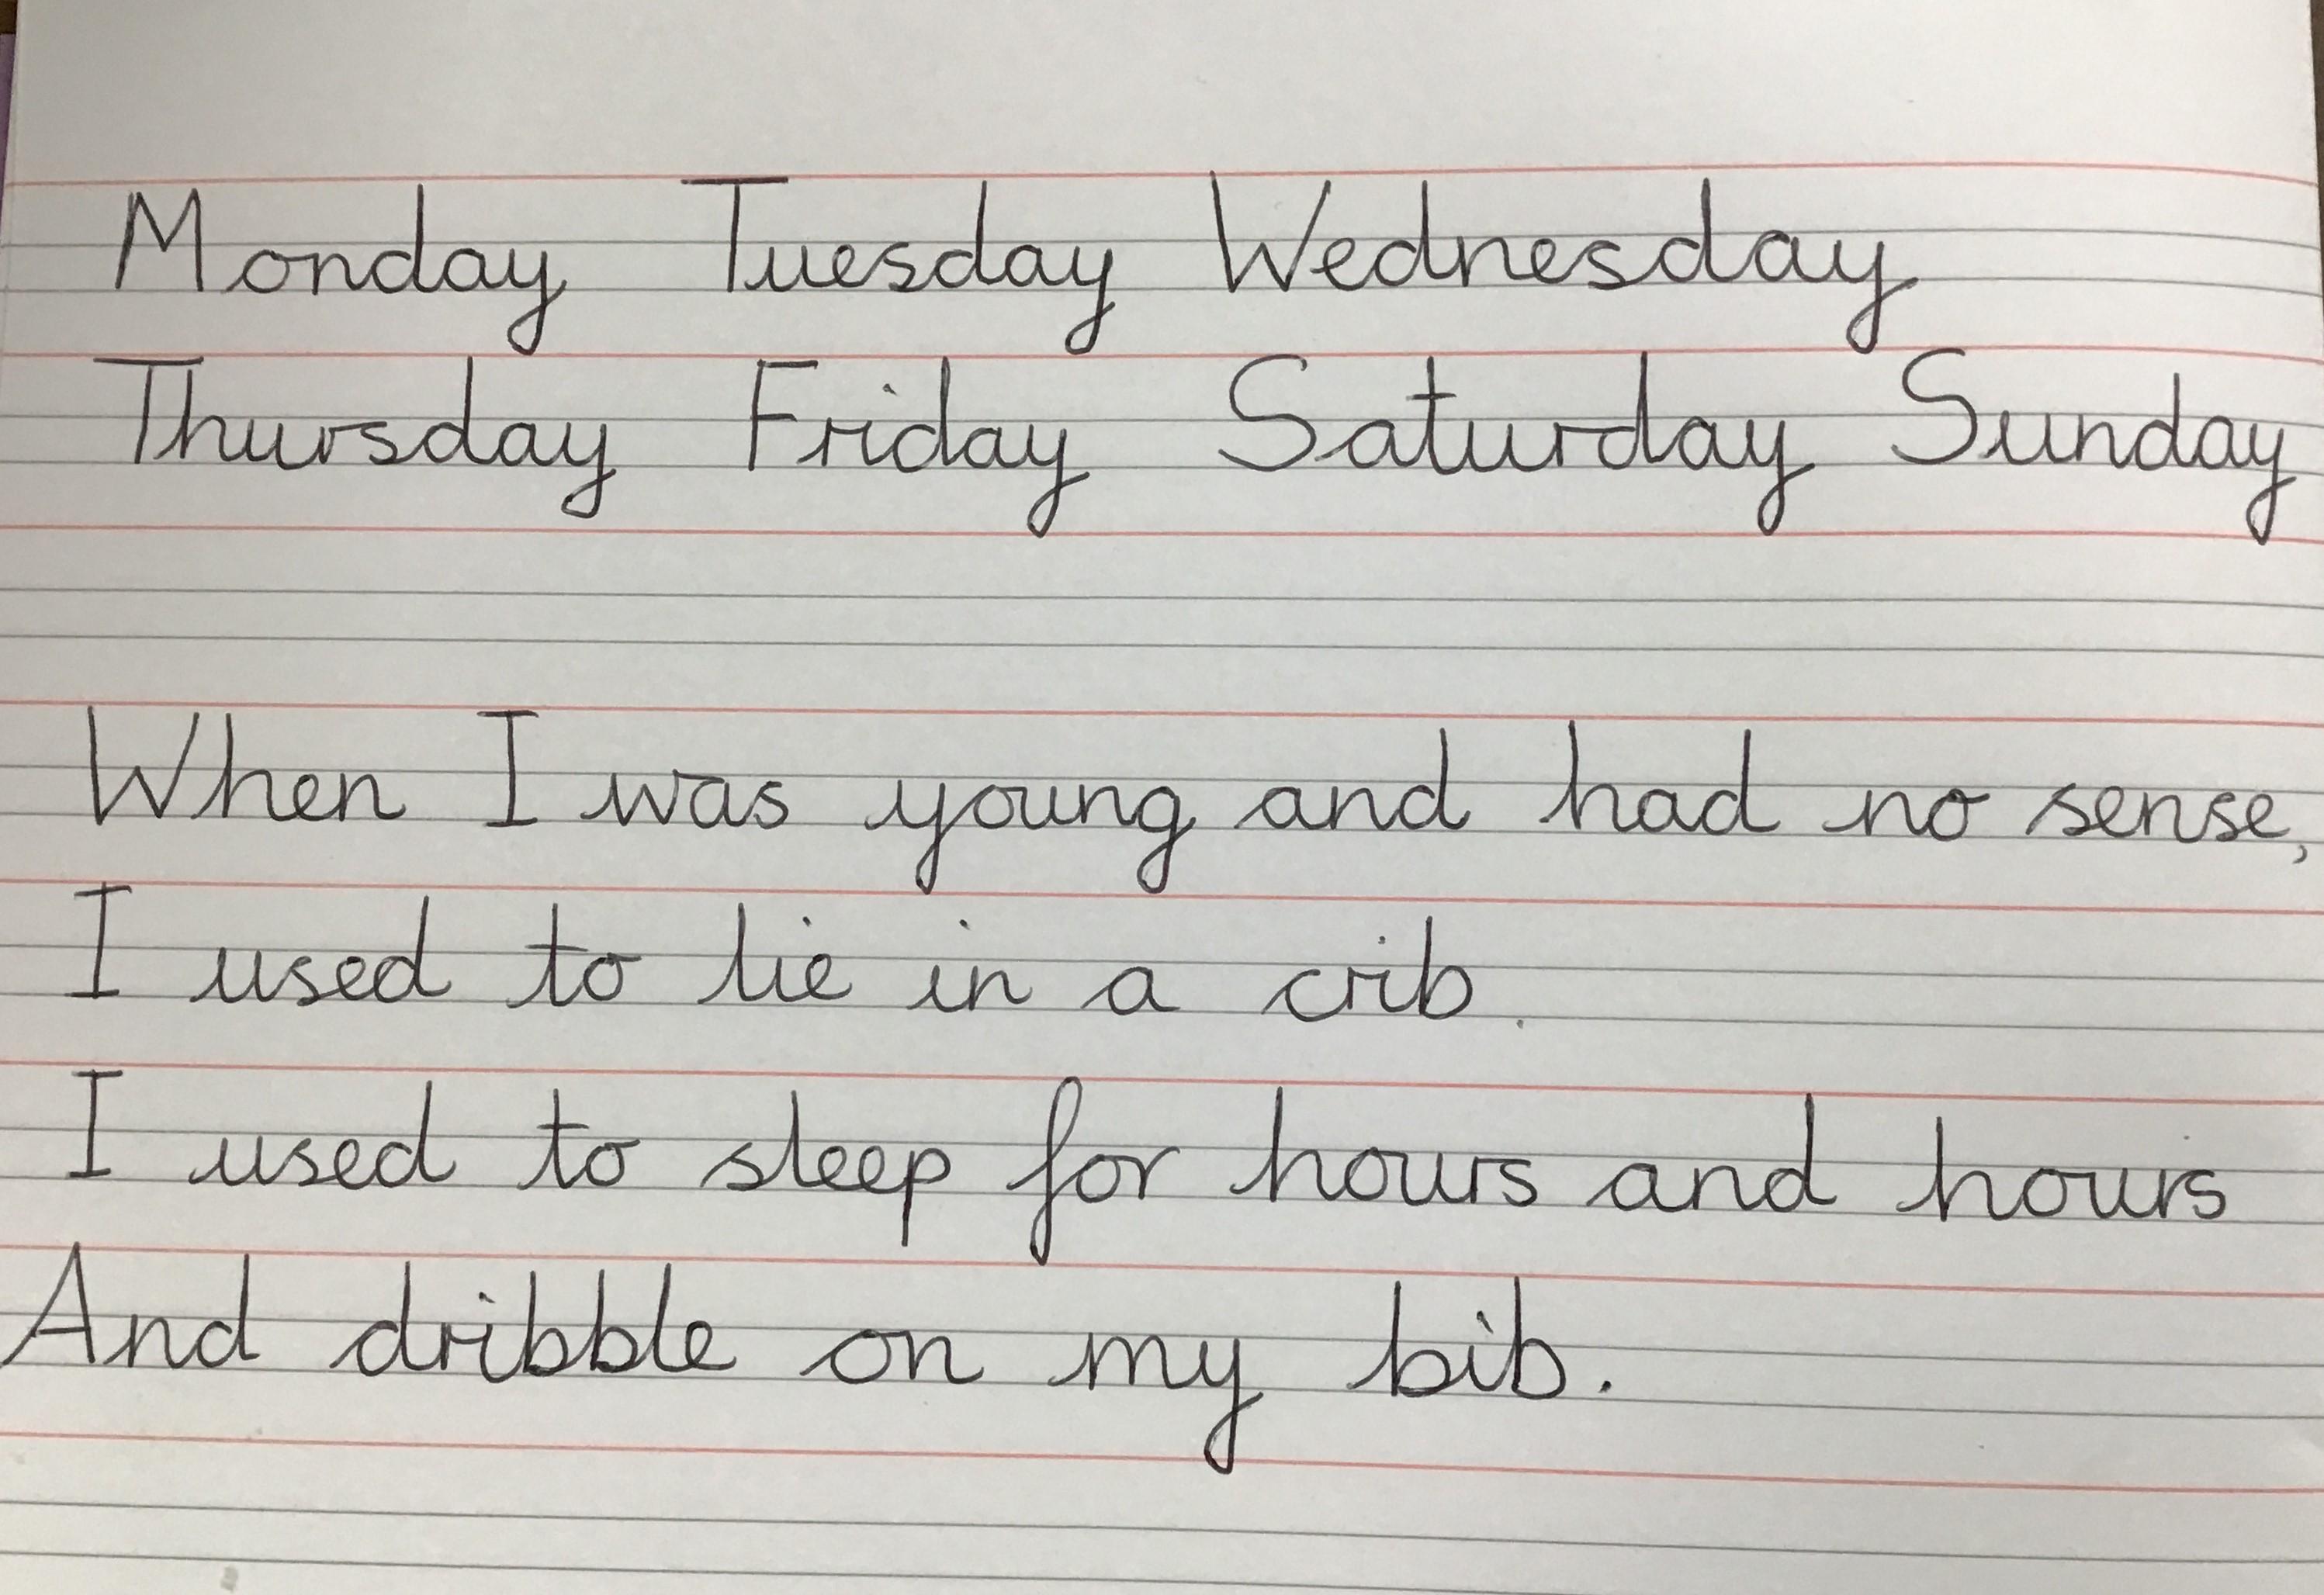 Monday Tuesday Wednesday
Thursday Friday Saturday Sunday
When I was young and had no sense,
I used to lie in a crib.
I used to sleep for hours and hours
And dribble on my bib.